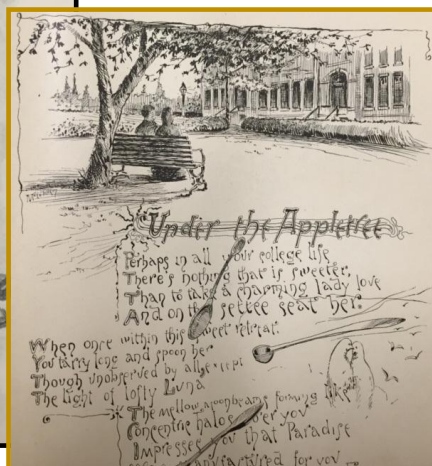 Under the Appletree
Perhaps in all your college life
There's nothing that is sweeter,
Than to take a charming lady love
And on the settee seat her.
When once within this sweet retreat
You tarry long and spoon her
Though unobserved by all
The light of lofty Luna
The mellow moonbeams forming like
Concentric halos o'er you
Impresses you that Paradise
manufactured for you